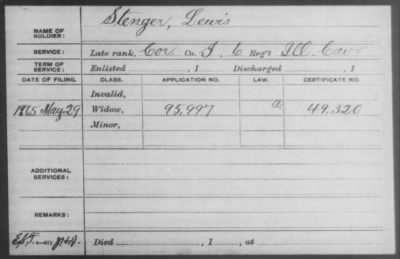 NAME OF SOLDIER: Stenger, Lewis
SERVICE: Late rank, Cor Co. I, 6 Reg't Ill. Cav
TERM OF SERVICE: Enlisted , 1 Discharged , 1
DATE OF FILING. CLASS. APPLICATION NO. LAW. CERTIFICATE NO.
Invalid,
1865 May 29 Widow, 95.997 a 49.320
Minor,
ADDITIONAL SERVICES:
REMARKS:
Died , 1 , at